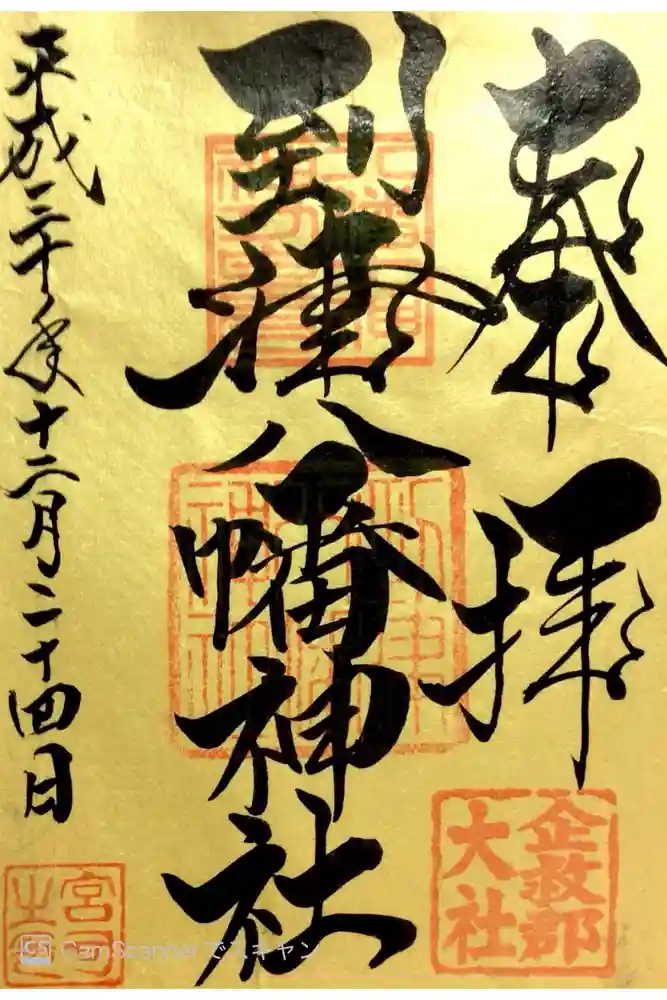 奉拝
到津八幡神社
平成三十年十二月二十四日
企救郡
大社
宮司
之印
CS CamScanner でスキャン